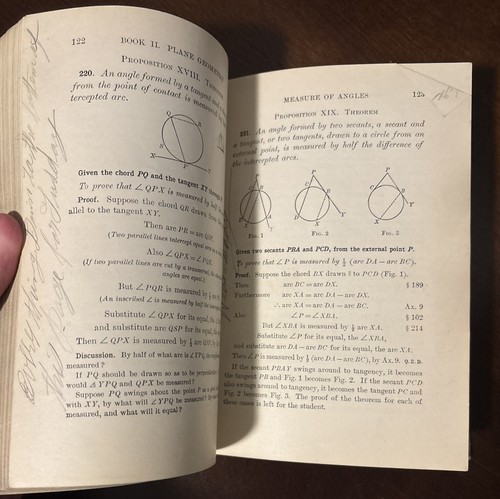 122 BOOK II. PLANE GEOMETRY
PROPOSITION XVIII.
220. An angle formed by a tangent and
from the point of contact is measured
tercepted arc.
Q
R
S
X
P
Given the chord PQ and the tangent XY through
To prove that ∠ QPX is measured by half
Proof. Suppose the chord QR drawn
allel to the tangent XY.
Then arc PR = arc
(Two parallel lines intercept equal arcs on a
Also ∠ QPX = ∠
(If two parallel lines are cut by a transversal, the
angles are equal.)
But ∠ PQR is measured by ½
(An inscribed ∠ is measured by half the
Substitute ∠ QPX for its equal, the
and substitute arc QSP for its equal, the
Then ∠ QPX is measured by ½ arc QSP, by
Discussion. By half of what arc is ∠ YPQ
measured?
If PQ should be drawn so as to be
would ∠ YPQ and QPX be measured?
Suppose PQ swings about the point P as a
with XY, by what will ∠ YPQ be measured? By
measured, and what will it equal?
MEASURE OF ANGLES 123
PROPOSITION XIX. THEOREM
221. An angle formed by two secants, a secant and
a tangent, or two tangents, drawn to a circle from an
external point, is measured by half the difference of
the intercepted arcs.
P P P
C B C B C B
D A
X Y Y
FIG. 1 FIG. 2 FIG. 3
Given two secants PBA and PCD, from the external point P.
To prove that ∠ P is measured by ½ (arc DA — arc BC).
Proof. Suppose the chord BX drawn ∥ to PCD (Fig. 1).
Then arc BC = arc DX. § 189
Furthermore arc XA = arc DA — arc DX.
∴ arc XA = arc DA — arc BC. Ax. 9
Also ∠ P = ∠ XBA. § 102
But ∠ XBA is measured by ½ arc XA. § 214
Substitute ∠ P for its equal, the ∠ XBA,
and substitute arc DA — arc BC for its equal, the arc XA.
Then ∠ P is measured by ½ (arc DA — arc BC), by Ax. 9. Q.E.D.
If the secant PBA swings around to tangency, it becomes
the tangent PB and Fig. 1 becomes Fig. 2. If the secant PCD
also swings around to tangency, it becomes the tangent PC and
Fig. 2 becomes Fig. 3. The proof of the theorem for each of
these cases is left for the student.